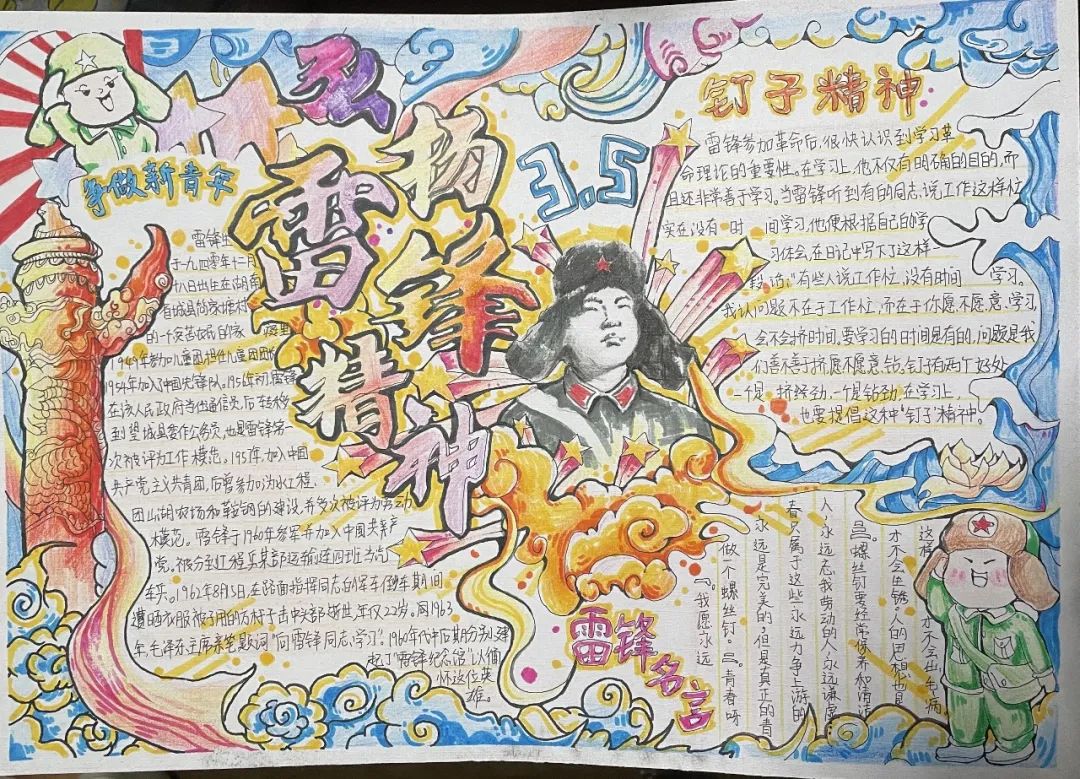 弘扬
雷锋
精神
3.5
争做新青年
雷锋
于一九四零年十二月
十八日出生在湖南
省望城县简家塘村
的一个贫苦农民的家
1949年参加儿童团担任儿童团团长
1954年加入中国少先队。1956年初雷锋
在该人民政府当任通信员,后转移
到望城县委作公务员,也是雷锋第一
次被评为工作模范。1957年加入中国
共产党主义共青团,后曾参加沩水工程、
团山湖农场和鞍钢的建设,并多次被评为劳动
模范。雷锋于1960年参军并加入中国共产
党,被分到工程兵某部运输连四班当汽
车兵。1962年8月15日,在路面指挥同志的军车倒车期间
遭晒衣服被子用的方村子击中头部逝世,年仅22岁。同1963
年,毛泽东主席亲笔题词"向雷锋同志学习"。1960年代中后期分别建
起了"雷锋纪念馆"以缅
怀这位英
雄。
钉子精神
雷锋参加革命后,很快认识到学习革
命理论的重要性。在学习上,他不仅有明确的目的,而
且还非常善于学习。当雷锋听到有的同志说工作这样忙
实在没有时间学习,他便根据自己的学
习体会,在日记中写下了这样
一段话:"有些人说工作忙,没有时间学习。
我认问题不在于工作忙,而在于你愿不愿意学习,
会不会挤时间,要学习的时间是有的,问题是我
们善不善于挤,愿不愿意钻。钉子有两个好处
一个是挤劲,一个是钻劲,在学习上,
也要提倡这种"钉子"精神。
雷锋名言
一。"我愿永远
做一个螺丝钉。二.青春呀
永远是完美的,但是真正的青
春只属于这些永远力争上游的
人,永远忘我劳动的人,永远谦虚
三。螺丝钉要经常保养和清洗
才不会生锈。人的思想也是
这样 才不会出毛病